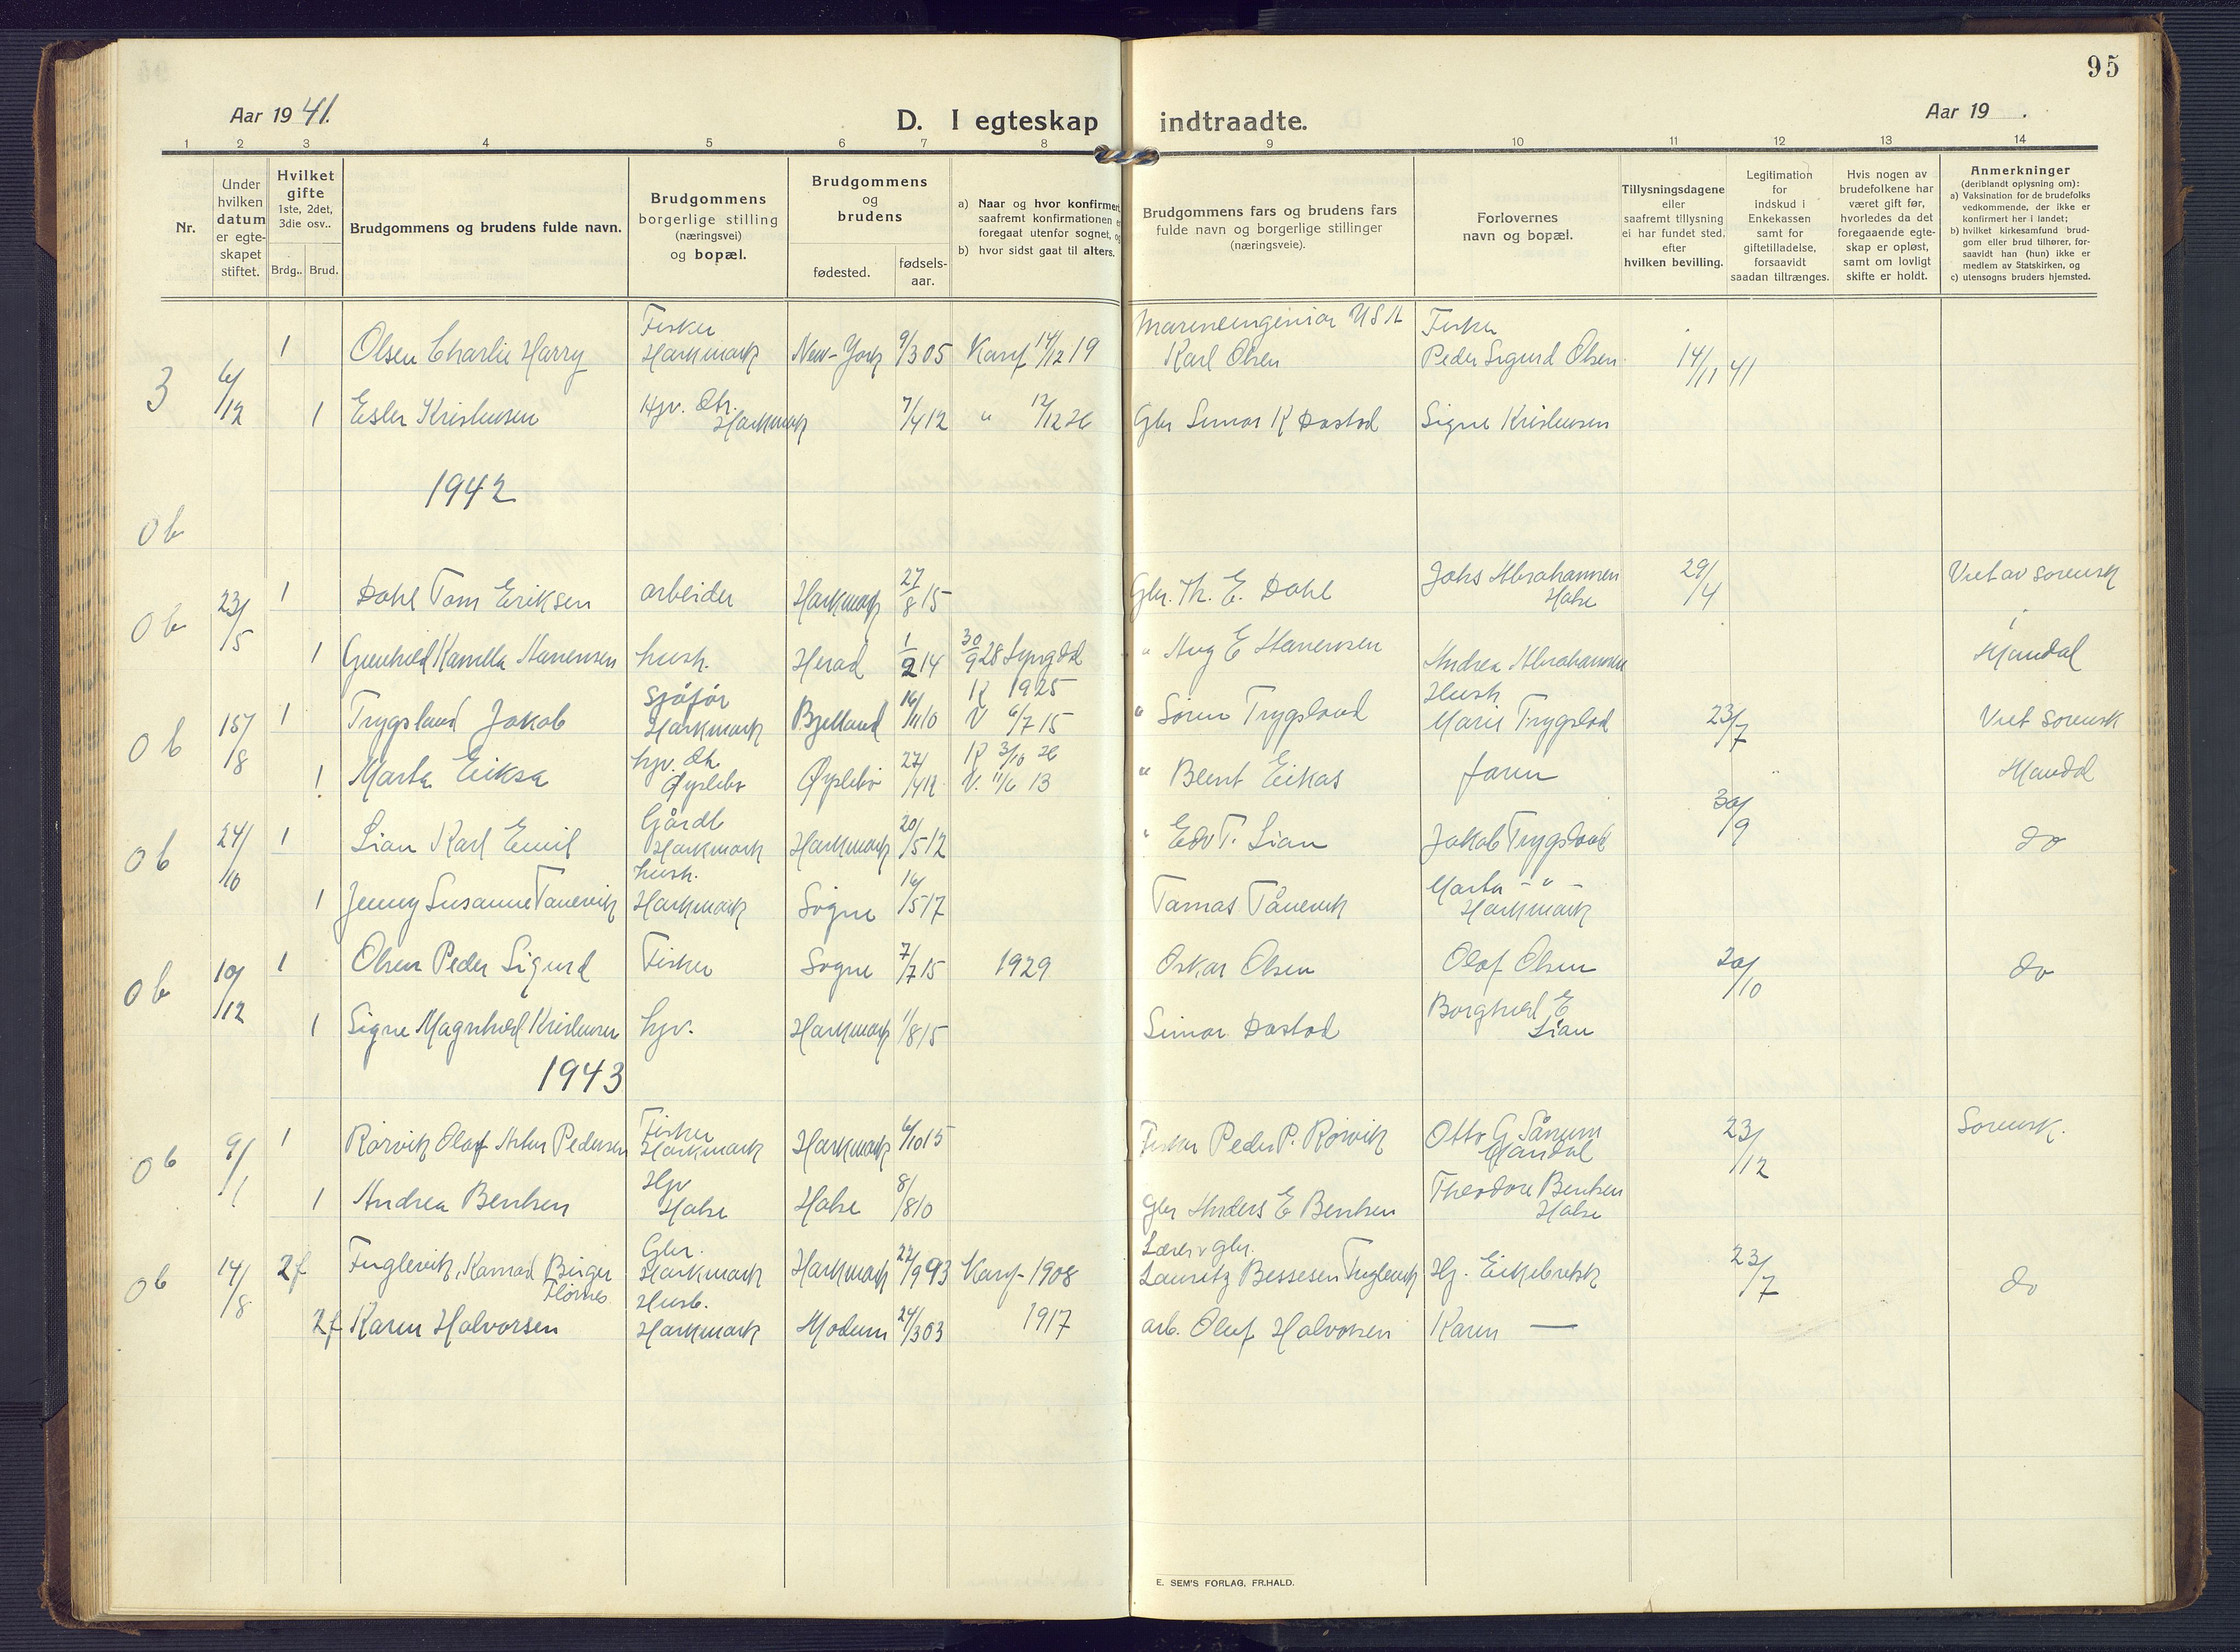 95
Aar 1941.
D. I egteskap indtraadte.
Aar 19 .
1 2 3 4 5 6 7 8 9 10 11 12 13 14
Nr.
Under hvilken datum er egteskapet stiftet.
Hvilket gifte 1ste, 2det, 3die osv..
Brdg.. Brud.
Brudgommens og brudens fulde navn.
Brudgommens borgerlige stilling (næringsvei) og bopæl.
Brudgommens og brudens
fødested.
fødsels-aar.
a) Naar og hvor konfirmert, saafremt konfirmationen er foregaat utenfor sognet, og
b) hvor sidst gaat til alters.
Brudgommens fars og brudens fars fulde navn og borgerlige stillinger (næringsveie).
Forlovernes navn og bopæl.
Tillysningsdagene eller saafremt tillysning ei har fundet sted, efter hvilken bevilling.
Legitimation for indskud i Enkekassen samt for giftetilladelse, forsaavidt saadan tiltrænges.
Hvis nogen av brudefolkene har været gift før, hvorledes da det foregaaende egteskap er opløst, samt om lovligt skifte er holdt.
Anmerkninger (deriblandt oplysning om):
a) Vaksination for de brudefolks vedkommende, der ikke er konfirmert her i landet;
b) hvilket kirkesamfund brudgom eller brud tilhører, forsaavidt han (hun) ikke er medlem av Statskirken, og
c) utensogns bruders hjemsted.
3 6/12 1 Olsen Charlie Harry Fisker Harkmark New-York 9/3 05 Konf 14/12 19 Marineingeniør USA Karl Olsen Fisker Peder Sigurd Olsen 14/11 41
1 Ester Kristensen Hjv. Dtr. Harkmark 7/4 12 " 12/12 26 Gbr Simon K Dastad Signe Kristensen
1942
0 b
0 b 23/5 1 Dahl Tom Eriksen arbeider Harkmark 27/8 15 Gbr. Th. E. Dahl Johs Abrahamsen Halse 29/4 Viet av sorensk
1 Gunhild Kamilla Hanensen hush. Herad 1/2 14 30/9 28 Lyngdal " Aug E Hanensen Andrea Abrahamsen i Mandal
0 b 15/8 1 Trygsland Jakob Sjåfør Harkmark Bjelland 16/11 10 K 1925 V 6/7 15 " Søren Trygsland Hush Marie Trygslad 23/7 Viet Sorensk
1 Marta Eiksa hjv. dtr Øyslebø Øyslebø 27/4 12 K 3/10 26 V. 11/6 13 " Blent Eikas faren Mandal
0 b 24/10 1 Lian Karl Emil Gårdb Harkmark Harkmark 20/5 12 " Edv T. Lian Jakob Trygsland 30/9 do
1 Jenny Susanne Tånevik hush. Harkmark Søgne 16/5 17 Tomas Tånevik Marta - " - Harkmark
0 b 10/12 1 Olsen Peder Sigurd Fisker Søgne 7/7 15 1929 Oskar Olsen Olaf Olsen 20/10 do
1 Signe Magnhild Kristensen hjv. Harkmark 1/8 15 Simon Dastad Borghild E Lian
1943
0 b 9/1 1 Rørvik Olaf Artur Pedersen Fisker Harkmark Harkmark 6/10 15 Fisker Peder P. Rørvik Otto G Sånum Mandal 23/12 Sorensk.
1 Andrea Bentsen Hjv Halse Halse 8/8 10 Gbr Anders E Bentsen Theodore Bentsen Halse
0 b 14/8 2f Fuglevik, Konrad Birger Flornes Gbr. Harkmark Harkmark 22/9 93 Konf- 1908 Lærer v gbr. Lauritz Bessesen Fuglevik Hj. Eikebrekk 23/7 do
2f Karen Halvorsen Husb. Harkmark Modum 24/3 03 1917 arb. Oluf Halvorsen Karen —
E. SEM'S FORLAG, FR.HALD.